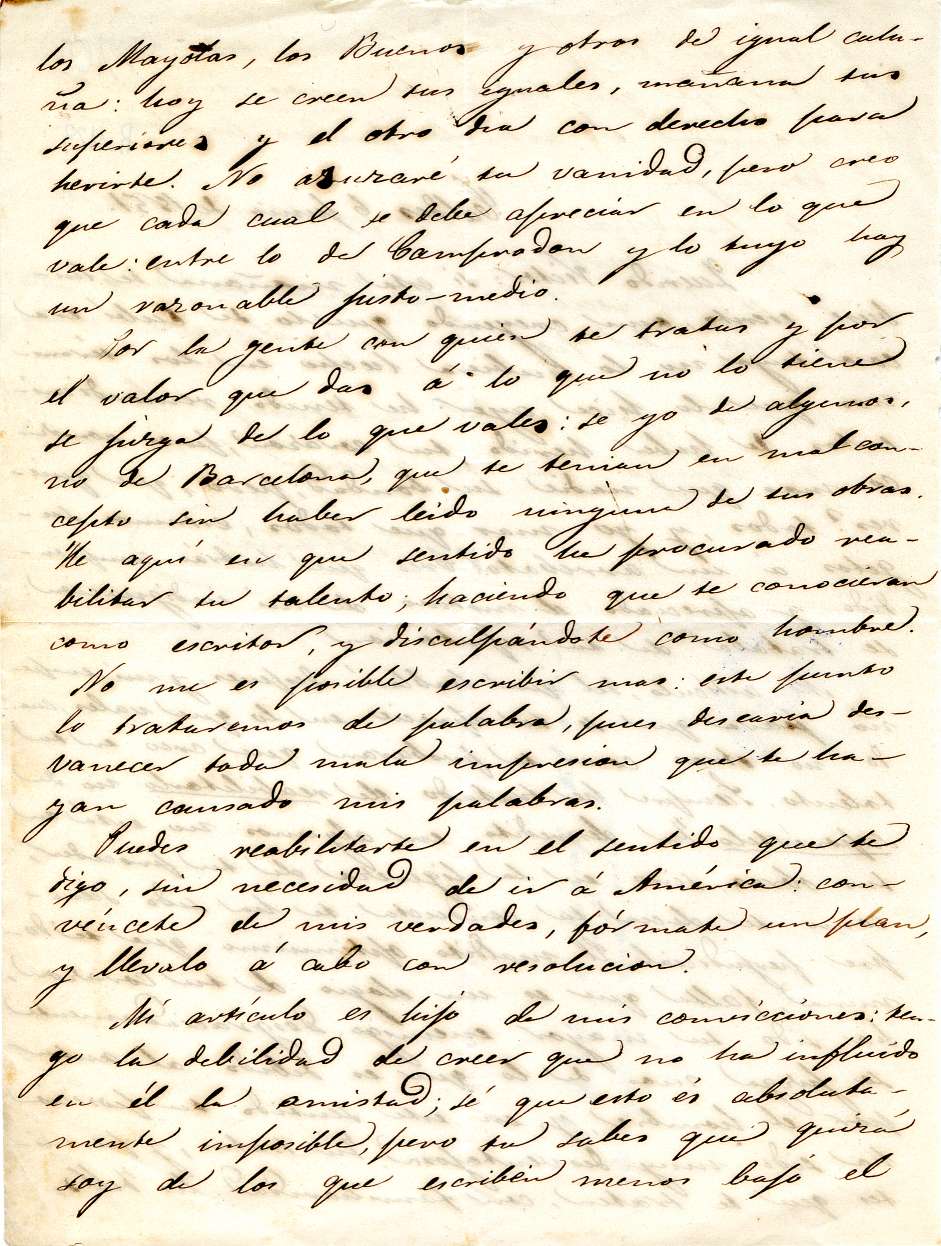 los Mayotas, los Buenos y otros de igual cala-
ña: hoy se creen sus iguales, mañana sus
superiores y el otro dia con derecho para
herirte. No azuzaré tu vanidad, pero creo
que cada cual se debe apreciar en lo que
vale: entre lo de Camprodon y lo tuyo hay
un razonable justo-medio.
Por la gente con quien te tratas y por
el valor que das á lo que no lo tiene
se juzga de lo que vales: se yo de algunos,
no de Barcelona, que te tenian en mal con-
cepto sin haber leido ninguna de tus obras.
He aquí en que sentido he procurado rea-
bilitar tu talento; haciendo que te conocieran
como escritor, y disculpándote como hombre.
No me es posible escribir mas: este punto
lo trataremos de palabra, pues desearia des-
vanecer toda mala impresion que te ha-
yan causado mis palabras.
Puedes reabilitarte en el sentido que te
digo, sin necesidad de ir á América: con-
véncete de mis verdades, fórmate un plan,
y llevalo á cabo con resolucion.
Mi artículo es hijo de mis convicciones: ten-
go la debilidad de creer que no ha influido
en él la amistad; sé que esto és absoluta-
mente imposible, pero tu sabes que quizá
soy de los que escriben menos bajo el